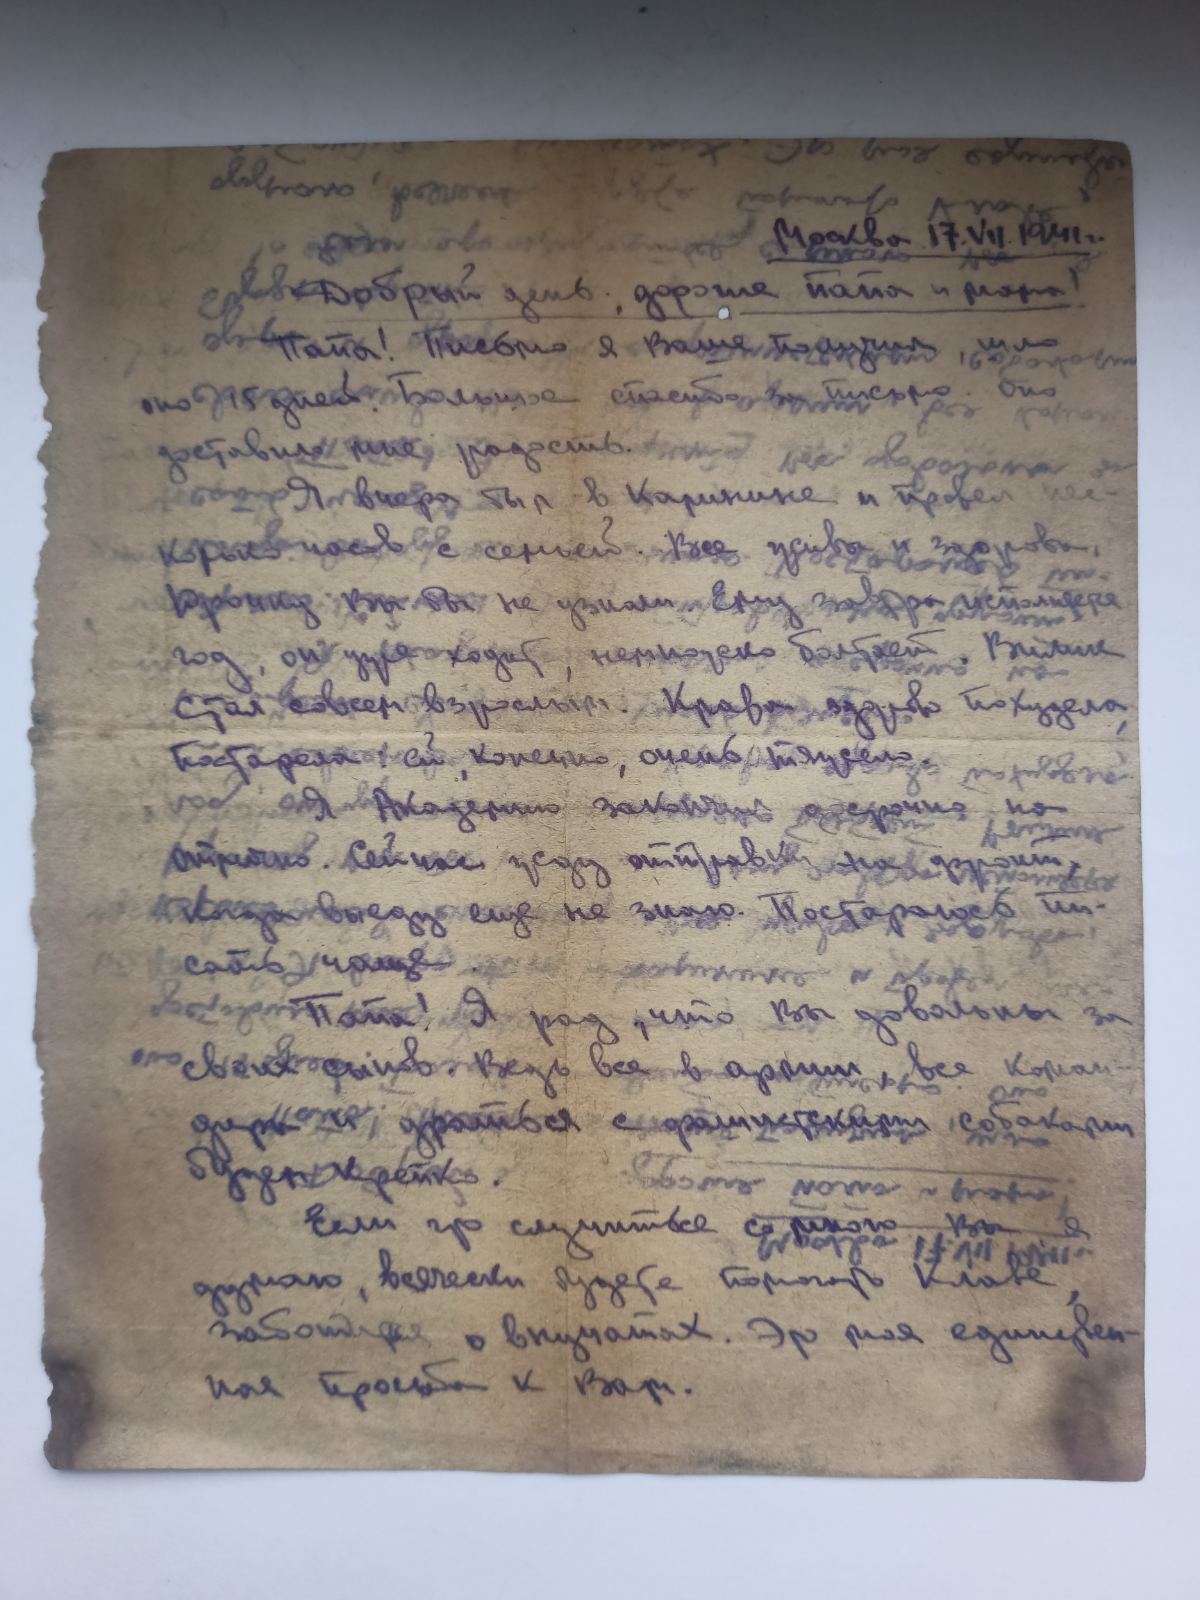 Москва 17.VII.1941г.
Добрый день, дорогие папа и мама!
Папа! Письмо я Ваше получил, шло
оно 15 дней. Большое спасибо за письмо. Оно
доставило мне радость.
Я вчера был в Калинине и провел нес-
колько часов с семьей. Все живы и здоровы.
Юрочку Вы бы не узнали. Ему завтра исполняется
год, он уже ходит, немножко болтает. Вилик
стал совсем взрослым. Клава здорово похудела,
постарела: ей, конечно, очень тяжело.
Я Академию закончил досрочно на
отлично. Сейчас жду отправки на фронт.
Когда выеду еще не знаю. Постараюсь пи-
сать чаще.
Папа! Я рад, что Вы довольны за
своих сынов. Ведь все в армии, все коман-
диры и драться с фашистскими собаками
будем крепко.
Если что случиться со мною Вы я
думаю, всячески будете помогать Клаве,
заботиться о внучатах. Это моя единствен-
ная просьба к Вам.